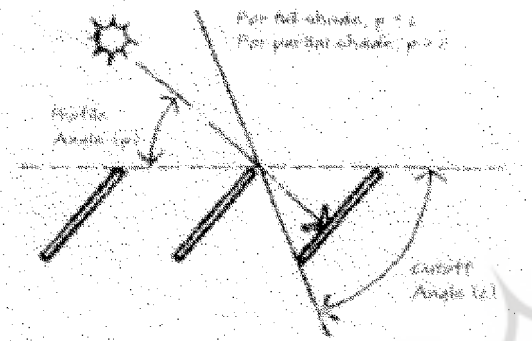 For full shade, p < c
For partial shade, p > c
Profile
Angle (p)
Cutoff
Angle (c)